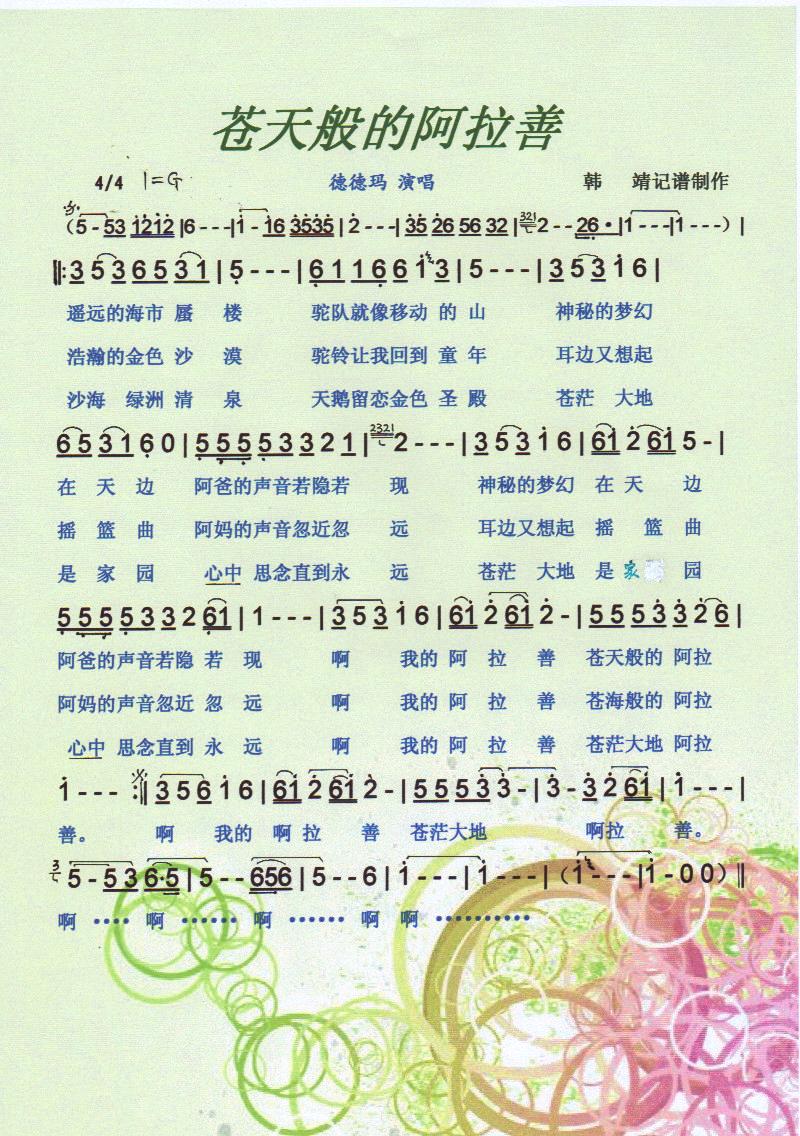 苍天般的阿拉善
4/4 1=G 德德玛 演唱 韩 靖记谱制作
（5 - 53 1212 |6 - - -|1 - 16 3535| 2 - - -| 35 26 56 32 |321 2 - - 26·|1 - - -|1 - - -）|
‖: 3 5 3 6 5 3 1 | 5 - - - | 6 1 1 6 6 1 3 | 5 - - - | 3 5 3 1 6 |
遥远的海市 蜃 楼 驼队就像移动 的 山 神秘的梦幻
浩瀚的金色 沙 漠 驼铃让我回到 童 年 耳边又想起
沙海 绿洲 清 泉 天鹅留恋金色 圣 殿 苍茫 大地
6 5 3 1 6 0 | 5 5 5 5 3 3 2 1 | 2321 2 - - - | 3 5 3 1 6 | 61 2 61 5 - |
在 天 边 阿爸的声音若隐若 现 神秘的梦幻 在 天 边
摇 篮 曲 阿妈的声音忽近忽 远 耳边又想起 摇 篮 曲
是 家 园 心中 思念直到永 远 苍茫 大地 是 家 园
5 5 5 5 3 3 2 61 | 1 - - - | 3 5 3 1 6 | 61 2 61 2 - | 5 5 5 3 3 2 6 |
阿爸的声音若隐 若 现 啊 我的 阿 拉 善 苍天般的 阿拉
阿妈的声音忽近 忽 远 啊 我的 阿 拉 善 苍海般的 阿拉
心中 思念直到 永 远 啊 我的 阿 拉 善 苍茫大地 阿拉
1 - - - :‖ 3 5 6 1 6 | 61 2 61 2 - | 5 5 5 3 3 - | 3 - 3 2 61 | 1 - - - |
善。 啊 我的 啊 拉 善 苍茫大地 啊拉 善。
3 5 - 5 3 6·5 | 5 - - 656 | 5 - - 6 | 1 - - - | 1 - - - |（1 - - - |1 - 0 0）‖
啊 •••• 啊 •••••• 啊 •••••• 啊 啊 ••••••••••